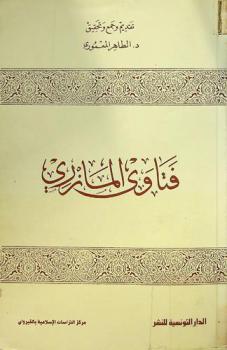 تقديم وجمع وتحقيق
د. الطاهر المعموري
فتاوى المازري
الدار التونسية للنشر
مركز الدراسات الإسلامية بالقيروان